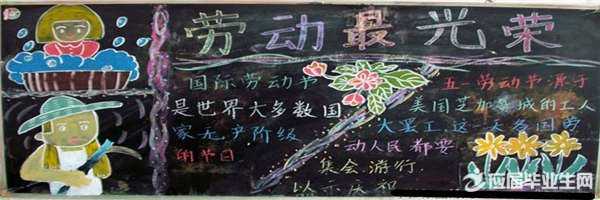 劳动最光荣
国际劳动节
是世界大多数国
家无产阶级
的节日
五一劳动节源于
美国芝加哥城的工人
大罢工.这一天各国劳
动人民都要
集会.游行
以示庆祝
应届毕业生网